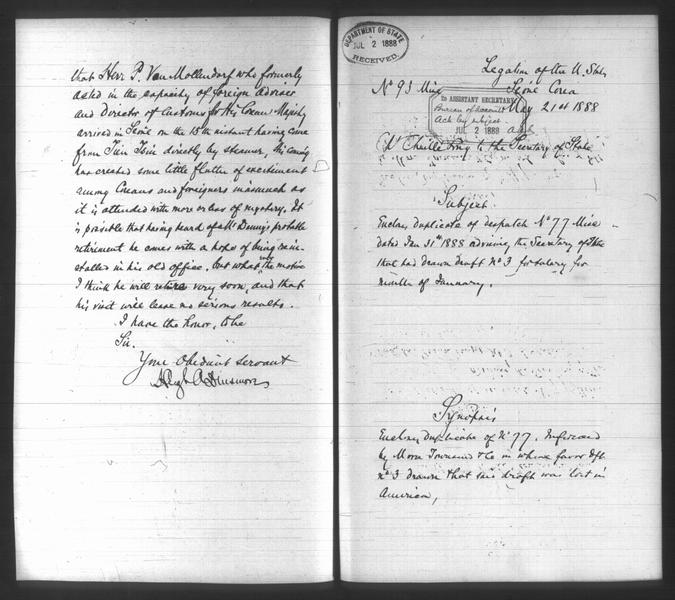 that Herr P. Von Mollendorf who formerly
acted in the capacity of foreign adviser
and Director of Customs for His Corean Majesty
arrived in Seoul on the 15th instant having come
from Tien Tsin directly by steamer, his coming
has created some little flutter of excitement
among Coreans and foreigners inasmuch as
it is attended with more or less of mystery. It
is possible that having heard of Mr Denny's probable
retirement he comes with a hope of being rein-
stalled in his old office, but whatever the motive
I think he will retire very soon, and that
his visit will leave no serious results.
I have the honor, to be
Sir.
Your obedient servant
Hugh A Dinsmore
DEPARTMENT OF STATE
JUL 2 1888
RECEIVED.
Legation of the U. States
No 93 Misc Seoul Corea
May 21st 1888
TO ASSISTANT SECRETARY
Bureau of
Ack by subject
JUL 2 1888
to the Secretary of State
Subject
Encloses duplicate of despatch No 77 Misc
dated Jan 31st 1888 advising the Secretary of State
that had drawn draft no 3 for salary for
month of January.
Synopsis
Encloses duplicate of No 77. Informed
by Morse Townsend & Co in whose favor dft
no 3 drawn that said draft was lost in
America,